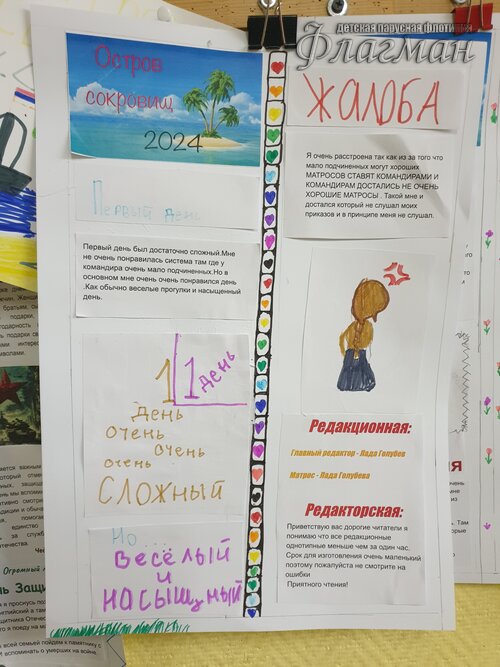 детская парусная флотилия
Флагман
Остров
сокровищ
2024
Первый день
Первый день был достаточно сложный.Мне
не очень понравилась система там где у
командира очень мало подчиненных.Но в
основном мне очень очень понравился день
.Как обычно веселые прогулки и насыщенный
день.
1
1 день
День
очень
очень
очень
сложный
Но...
Весёлый
и
насыщеный
ЖАЛОБА
Я очень расстроена так как из за того что
мало подчиненных могут хороших
МАТРОСОВ СТАВЯТ КОМАНДИРАМИ И
КОМАНДИРАМ ДОСТАЛИСЬ НЕ ОЧЕНЬ
ХОРОШИЕ МАТРОСЫ . Такой мне и
достался который не слушал моих
приказов и в принципе меня не слушал.
Редакционная:
Главный редактор - Лада Голубев
Матрос - Лада Голубева
Редакторская:
Приветствую вас дорогие читатели я
понимаю что все редакционные
однотипные меньше чем за один час.
Срок для изготовления очень маленький
поэтому пожалуйста не смотрите на
ошибки
Приятного чтения!